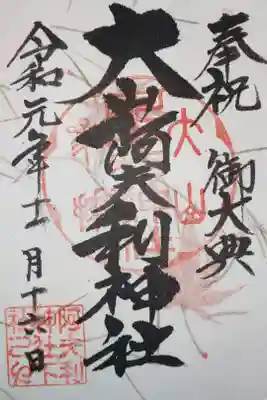 奉祝 御大典
大山阿夫利神社
令和元年十一月十六日
阿夫利
神社下
社之印